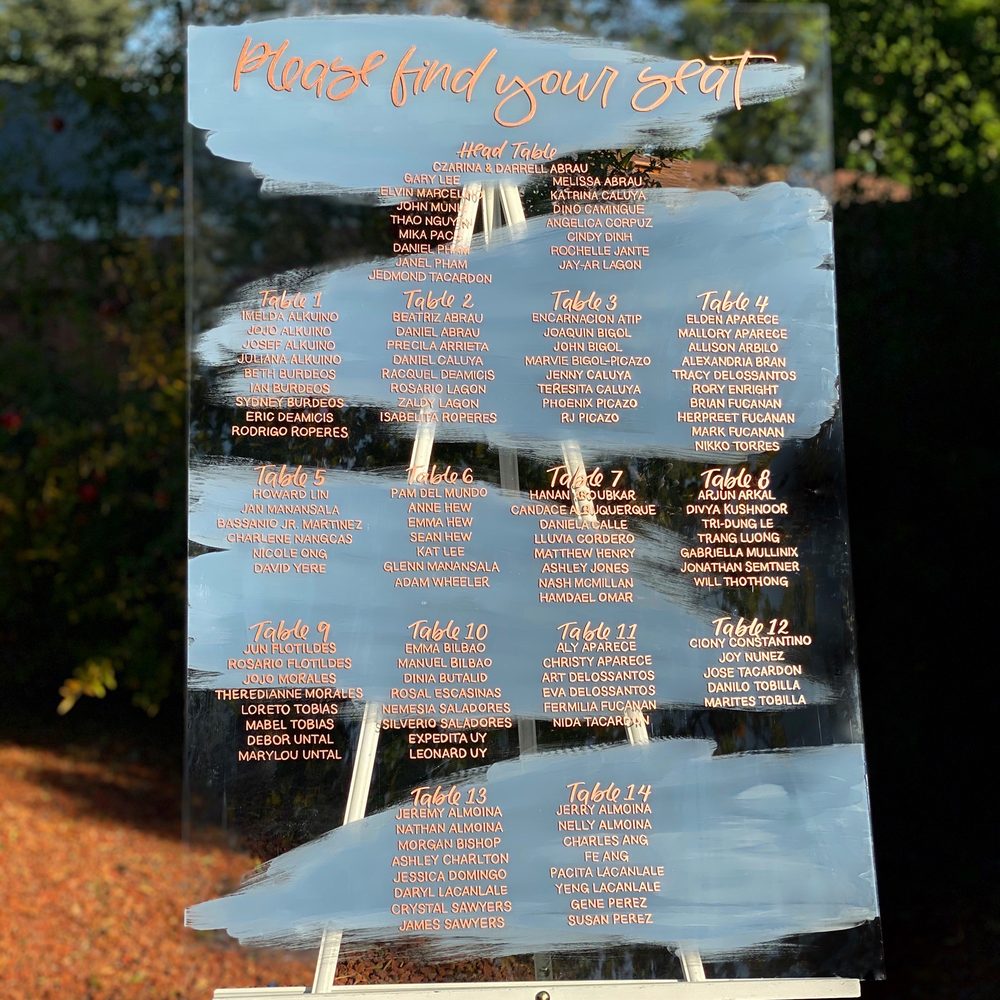 Please find your seat
Head Table
CZARINA & DARRELL ABRAU
GARY LEE
ELVIN MARCELINO
JOHN MUNI
THAO NGUYEN
MIKA PACE
DANIEL PHAM
JANEL PHAM
JEDMOND TACARDON
MELISSA ABRAU
KATRINA CALUYA
DINO CAMINGUE
ANGELICA CORPUZ
CINDY DINH
ROCHELLE JANTE
JAY-AR LAGON
Table 1
IMELDA ALKUINO
JOJO ALKUINO
JOSEF ALKUINO
JULIANA ALKUINO
BETH BURDEOS
IAN BURDEOS
SYDNEY BURDEOS
ERIC DEAMICIS
RODRIGO ROPERES
Table 2
BEATRIZ ABRAU
DANIEL ABRAU
PRECILA ARRIETA
DANIEL CALUYA
RACQUEL DEAMICIS
ROSARIO LAGON
ZALDY LAGON
ISABELITA ROPERES
Table 3
ENCARNACION ATIP
JOAQUIN BIGOL
JOHN BIGOL
MARVIE BIGOL-PICAZO
JENNY CALUYA
TERESITA CALUYA
PHOENIX PICAZO
RJ PICAZO
Table 4
ELDEN APARECE
MALLORY APARECE
ALLISON ARBILO
ALEXANDRIA BRAN
TRACY DELOSSANTOS
RORY ENRIGHT
BRIAN FUCANAN
HERPREET FUCANAN
MARK FUCANAN
NIKKO TORRES
Table 5
HOWARD LIN
JAN MANANSALA
BASSANIO JR. MARTINEZ
CHARLENE NANGCAS
NICOLE ONG
DAVID YERE
Table 6
PAM DEL MUNDO
ANNE HEW
EMMA HEW
SEAN HEW
KAT LEE
GLENN MANANSALA
ADAM WHEELER
Table 7
HANAN
CANDACE ALBUQUERQUE
DANIELA CALLE
LLUVIA CORDERO
MATTHEW HENRY
ASHLEY JONES
NASH MCMILLAN
HAMDAEL OMAR
Table 8
ARJUN ARKAL
DIVYA KUSHNOOR
TRI-DUNG LE
TRANG LUONG
GABRIELLA MULLINIX
JONATHAN SEMTNER
WILL THOTHONG
Table 9
JUN FLOTILDES
ROSARIO FLOTILDES
JOJO MORALES
THEREDIANNE MORALES
LORETO TOBIAS
MABEL TOBIAS
DEBOR UNTAL
MARYLOU UNTAL
Table 10
EMMA BILBAO
MANUEL BILBAO
DINIA BUTALID
ROSAL ESCASINAS
NEMESIA SALADORES
SILVERIO SALADORES
EXPEDITA UY
LEONARD UY
Table 11
ALY APARECE
CHRISTY APARECE
ART DELOSSANTOS
EVA DELOSSANTOS
FERMILIA FUCANAN
NIDA TACARDON
Table 12
CIONY CONSTANTINO
JOY NUNEZ
JOSE TACARDON
DANILO TOBILLA
MARITES TOBILLA
Table 13
JEREMY ALMOINA
NATHAN ALMOINA
MORGAN BISHOP
ASHLEY CHARLTON
JESSICA DOMINGO
DARYL LACANLALE
CRYSTAL SAWYERS
JAMES SAWYERS
Table 14
JERRY ALMOINA
NELLY ALMOINA
CHARLES ANG
FE ANG
PACITA LACANLALE
YENG LACANLALE
GENE PEREZ
SUSAN PEREZ